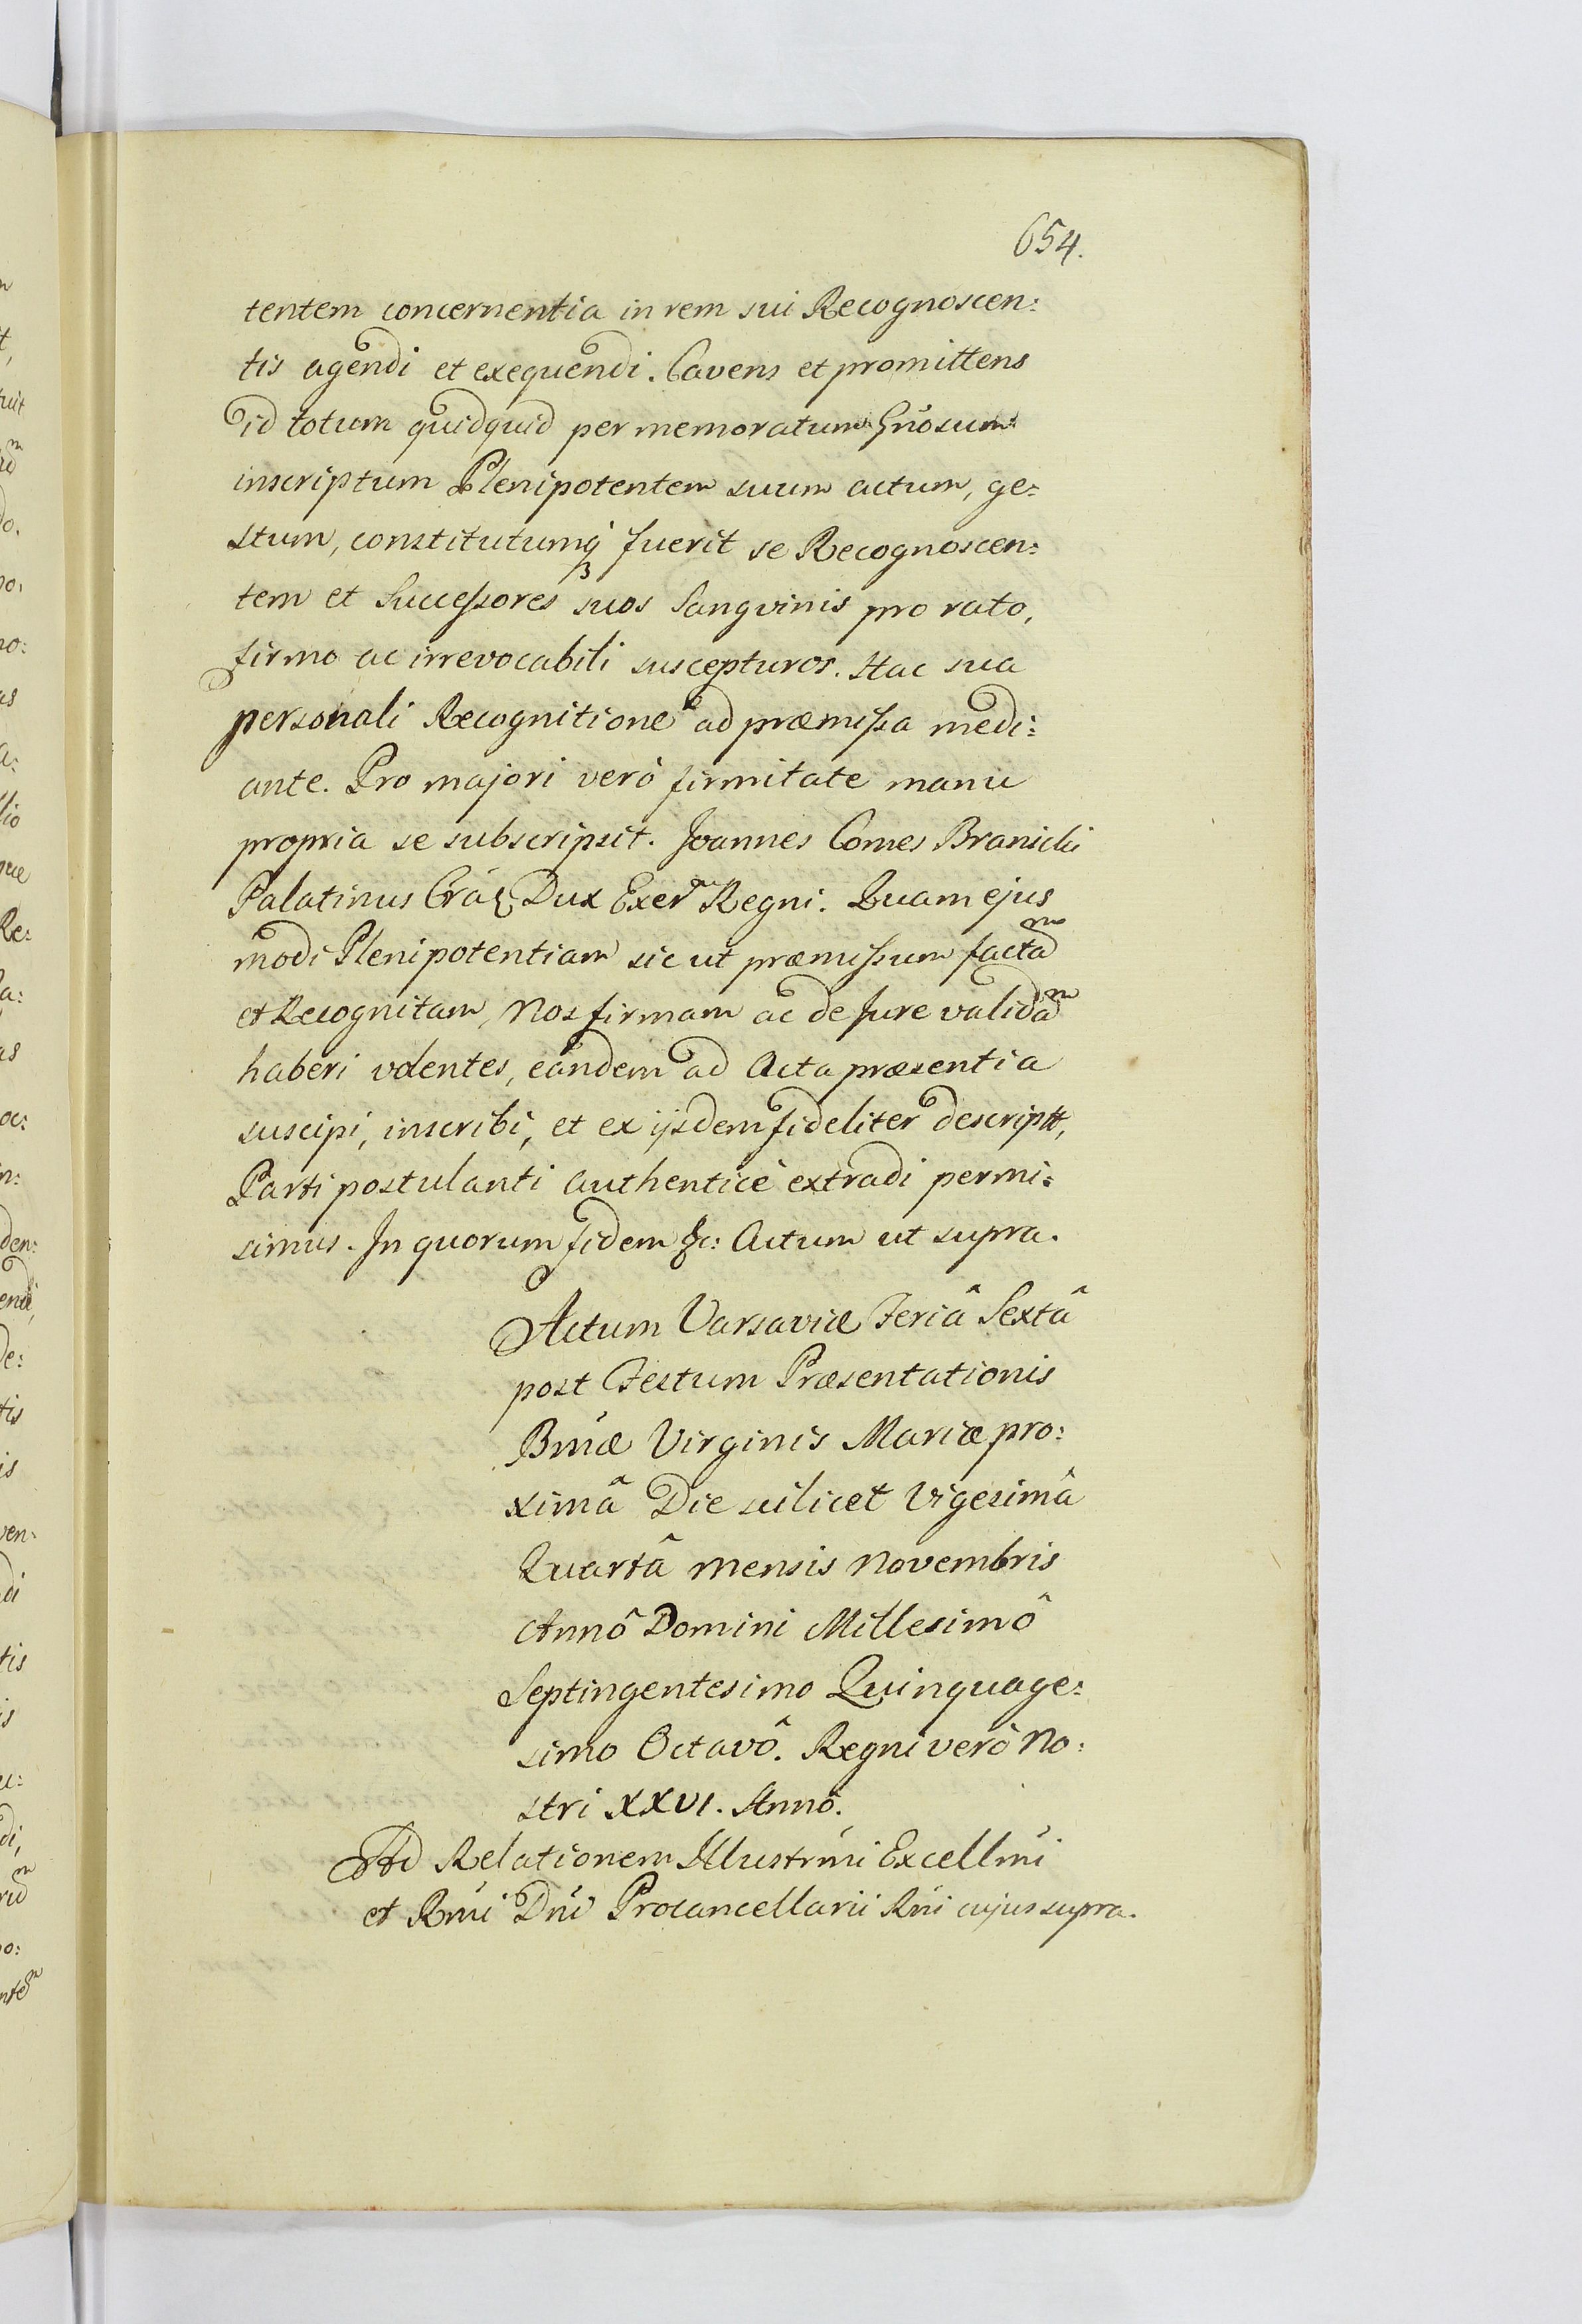 654.
tentem concernentia in rem sui Recognoscen:
tis agendi et exequendi. Cavens et promittens
id totum quidquid per memoratum Gnosum
inscriptum Plenipotentem suum actum, ge:
stum, constitutumq́ fuerit se Recognoscen:
tem et Successores suos Sangvinis pro rato,
firmo ac irrevocabili suscepturos. Hac sua
personali Recognitione ad præmissa medi:
ante. Pro majori verò firmitate manu
propria se subscripsit. Joannes Comes Branicki
Palatinus Dux Regni. Quam ejus
modi Plenipotentiam sic ut præmissum factam
et Recognitam, Nos firmam ac de Jure validam
haberi volentes, eandem ad Acta præsentia
suscipi, inscribi, et ex ijsdem fideliter descriptt,
Parti postulanti authenticè extradi permi:
simus. In quorum fidem &c: Actum ut supra.
Actum Varsaviæ Feriâ Sextâ
post Festum Præsentationis
Bmæ Virginis Mariæ pro:
ximâ Die scilicet Vigesimâ
Quartâ mensis Novembris
Annô Domini Millesimô
Septingentesimo Quinquage:
simo Octavô. Regni verò No:
stri XXVI. Annô.
Ad Relationem Illustrmi Excellmi
et Rmi Dni Procancellarii Rni cujus supra.